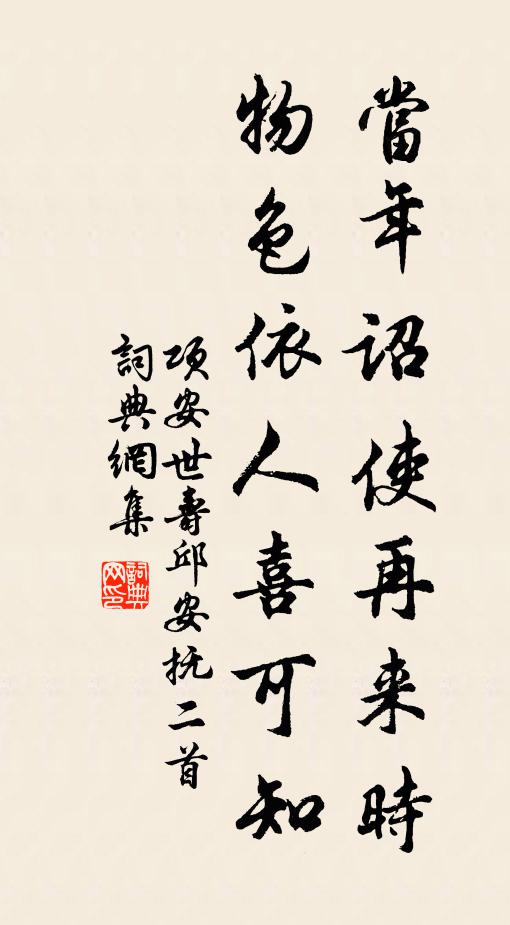 當年詔使再来時
物色依人喜可知
项安世壽邱安抚二首
詞典網集
詞典网印